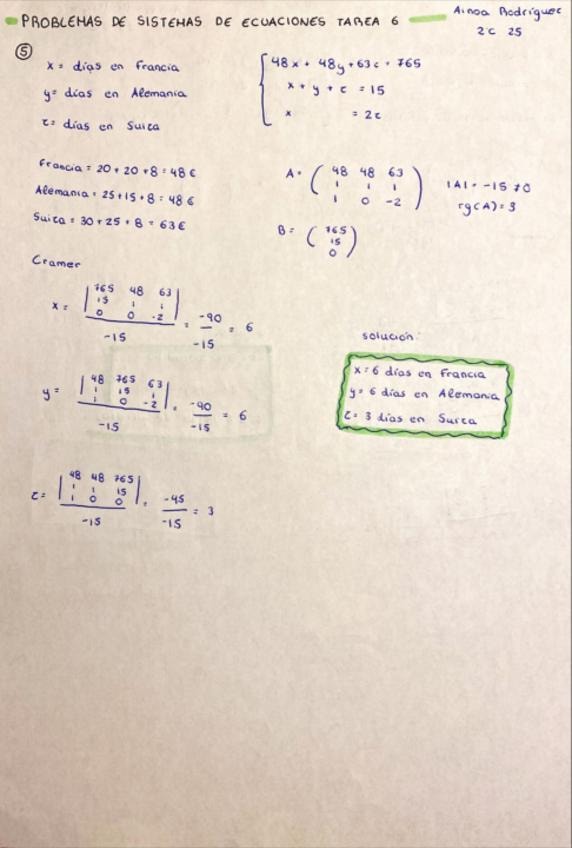 PROBLEMAS DE SISTEMAS DE ECUACIONES TAREA 6
Ainoa Rodríguez
2ºC 25
⑤
x = días en Francia
y = días en Alemania
z = días en Suiza
48x + 48y + 63z = 765
x + y + z = 15
x = 2z
Francia = 20 + 20 + 8 = 48 €
Alemania = 25 + 15 + 8 = 48 €
Suiza = 30 + 25 + 8 = 63 €
A = ( 48 48 63
1 1 1
1 0 -2 )
|A| = -15 ≠ 0
rg(A) = 3
B = ( 765
15
0 )
Cramer
x = | 765 48 63
15 1 1
0 0 -2 |
-15
= -90 / -15 = 6
y = | 48 765 63
1 15 1
1 0 -2 |
-15
= -90 / -15 = 6
z = | 48 48 765
1 1 15
1 0 0 |
-15
= -45 / -15 = 3
solución:
x = 6 días en Francia
y = 6 días en Alemania
z = 3 días en Suiza